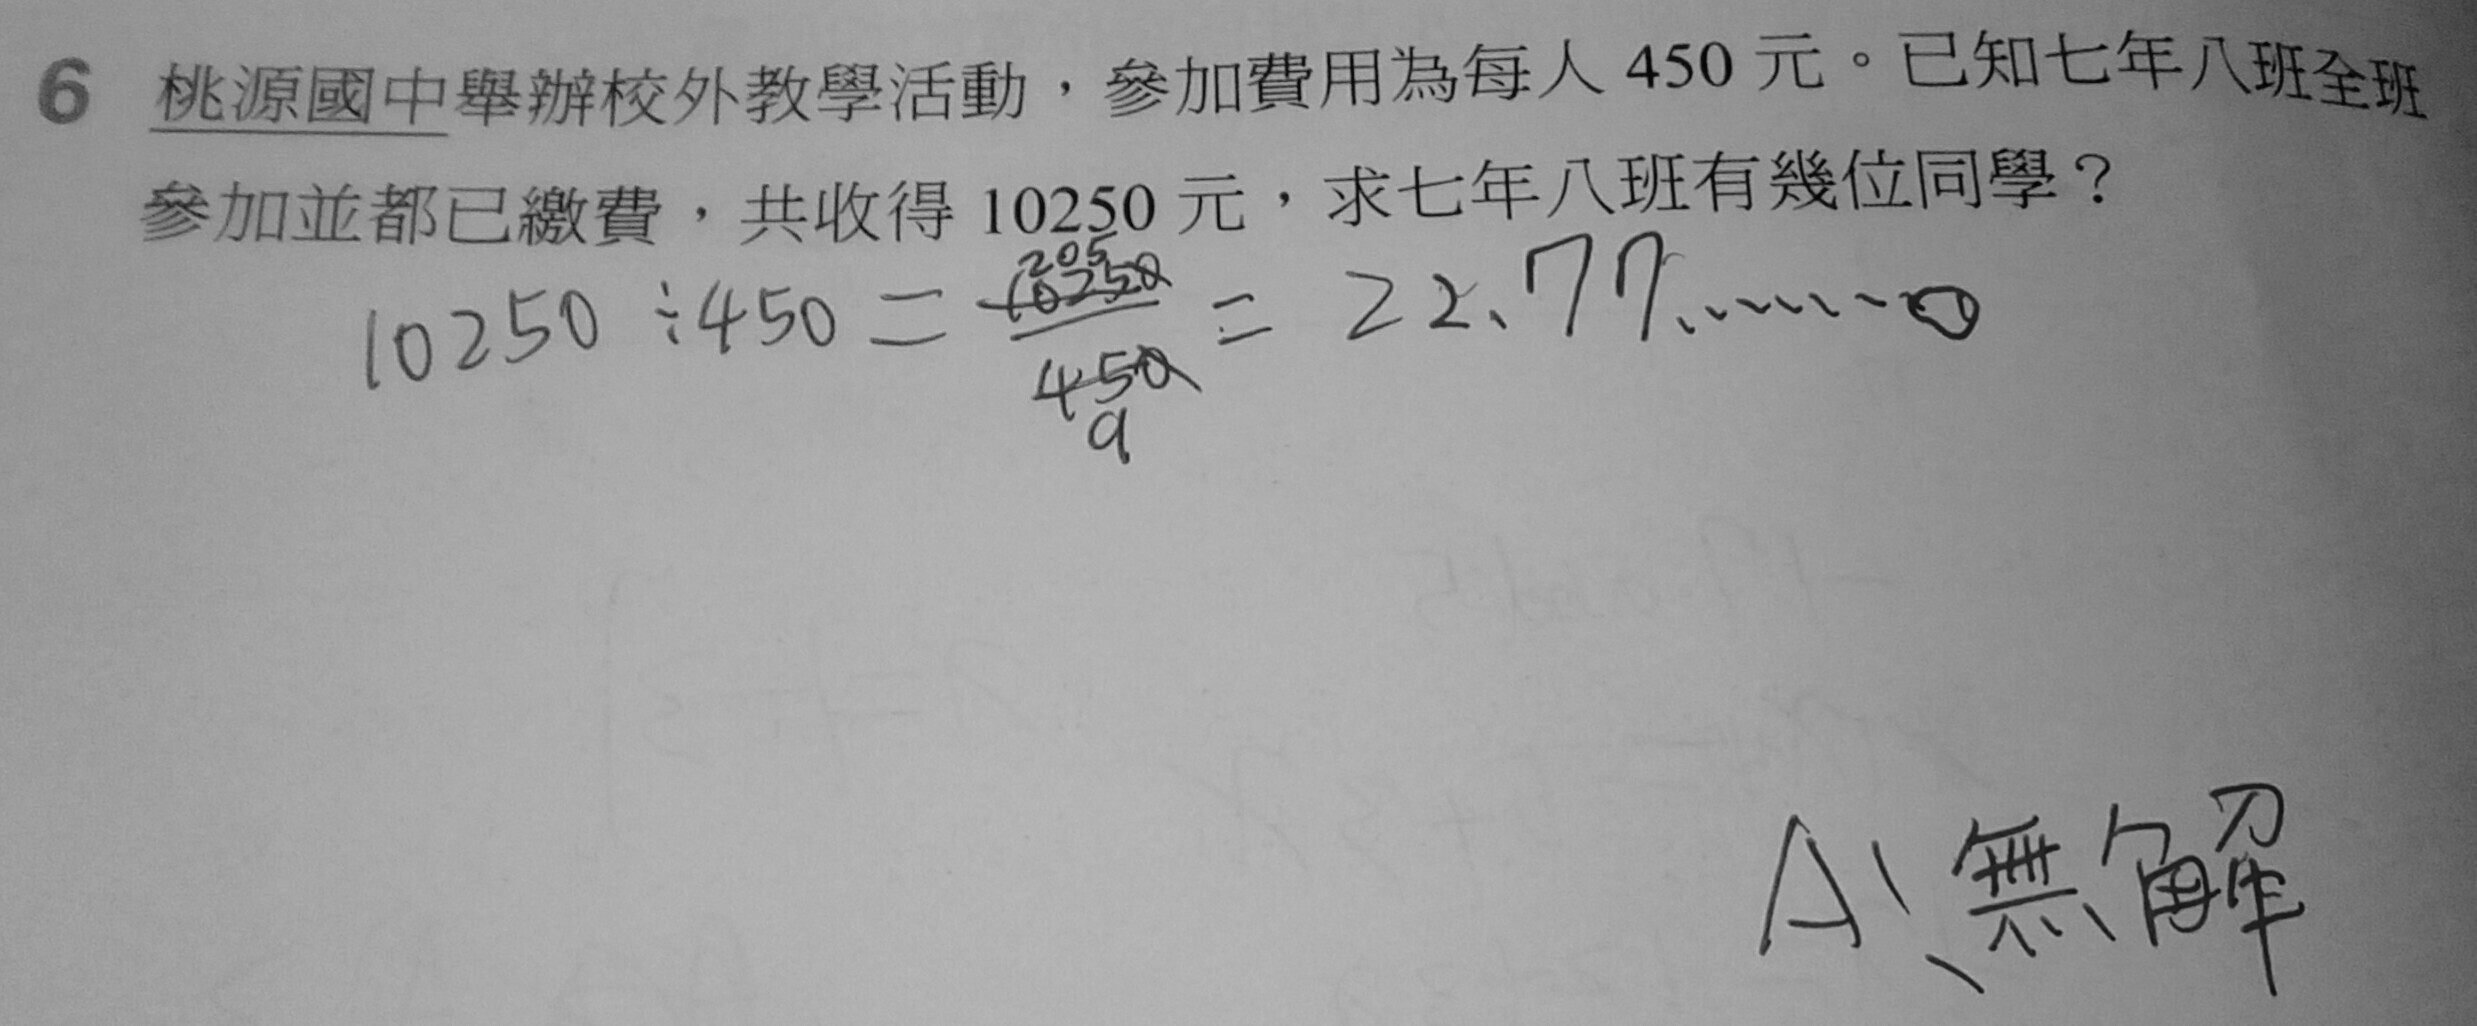 6 桃源國中舉辦校外教學活動，參加費用為每人 450 元。已知七年八班全班
參加並都已繳費，共收得 10250 元，求七年八班有幾位同學？
205
10250 ÷ 450 = 10250 / 450 = 22.77......
9
A:無解